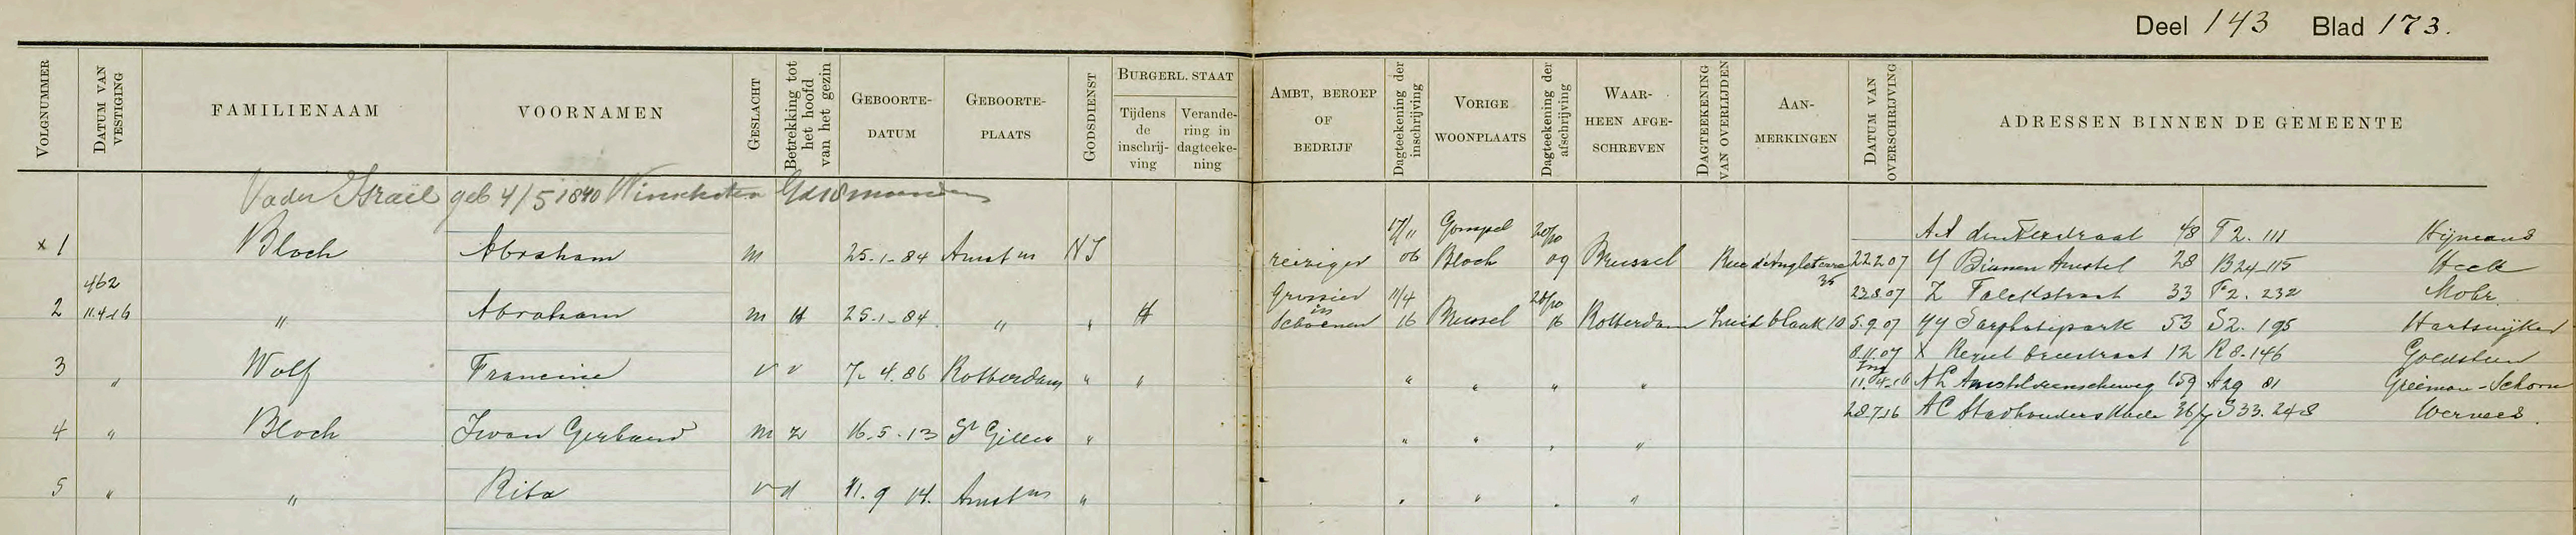 Deel 143 Blad 173.
VOLGNUMMER DATUM VAN VESTIGING FAMILIENAAM VOORNAMEN GESLACHT Betrekking tot het hoofd van het gezin GEBOORTE-DATUM GEBOORTE-PLAATS GODSDIENST BURGERL. STAAT Tijdens de inschrij-ving Verande-ring in dagteeke-ning AMBT, BEROEP OF BEDRIJF Dagteekening der inschrijving VORIGE WOONPLAATS Dagteekening der afschrijving WAAR-HEEN AFGE-SCHREVEN DAGTEEKENING VAN OVERLIJDEN AAN-MERKINGEN DATUM VAN OVERSCHRIJVING ADRESSEN BINNEN DE GEMEENTE
Vader Israël geb 4/5 1840 Winschoten
x 1 Bloch Abraham m 25-1-84 Amstm NI reiziger 17/11 06 Gompel Bloch 20/10 09 Brussel Rue d'Angleterre 35
462
2 11.4.16 " Abraham m H 25-1-84 " " H Grossier in Schoenen 11/4 16 Brussel 28/10 16 Rotterdam Zuidblaak 10
3 " Wolf Francine v v 7-4.86 Rotterdam " " " " " "
4 " Bloch Iwan Gerhard m z 16-5-13 St Gilles " " " " "
5 " " Rita v d 11.9 14. Amstm " " " " "
48 T2. 111 Hijmans
22.2.07 Y Binnen Amstel 28 B24-115 Heck
23.8.07 Z Falckstraat 33 F2. 232 Mohr
5.9.07 YY Sarphatipark 53 S2. 195 Hartsuijker
8.11.07 X 12 R8-146 Goldsteen
11.4-16 AL Amstelveenscheweg 159 A29 81
28.7.16 AC Stadhouderskade S33. 248